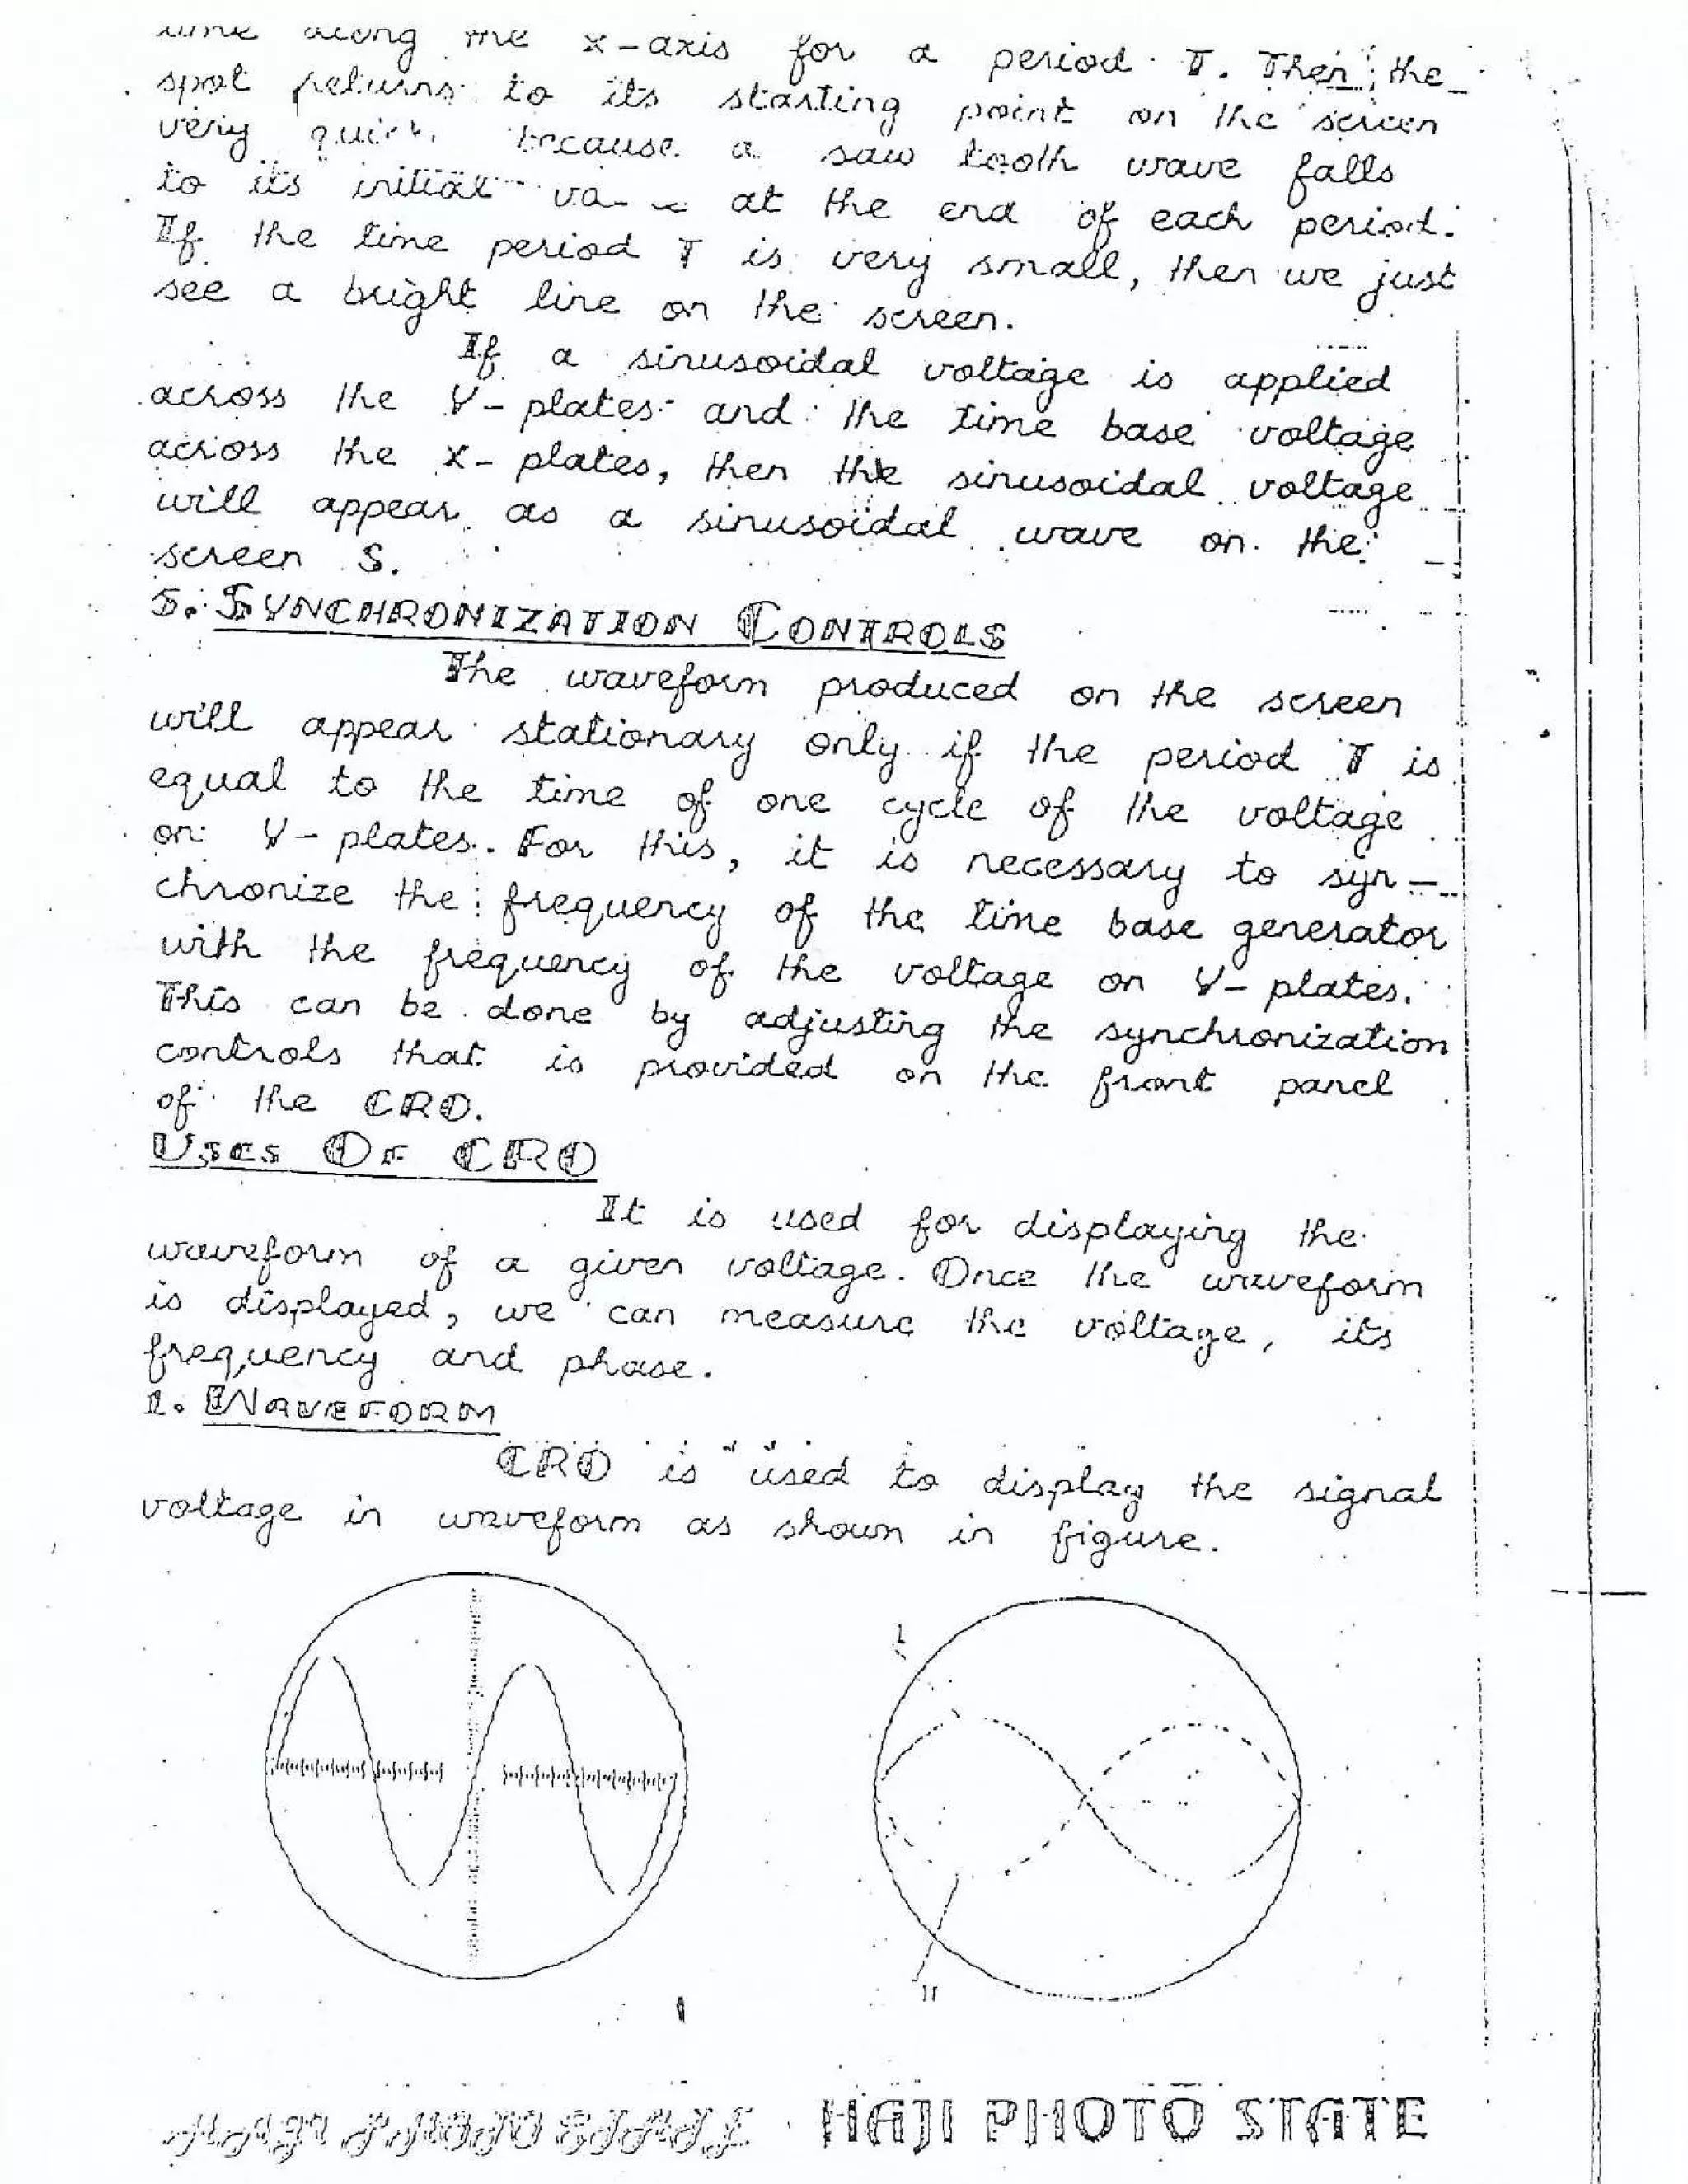 along the x-axis for a period T. Then the
spot returns to its starting point on the screen
very because a saw tooth wave falls
to its initial at the end of each period.
If the time period T is very small, then we just
see a bright line on the screen.
If a sinusoidal voltage is applied
across the Y-plates and the time base voltage
across the X-plates, then the sinusoidal voltage
will appear as a sinusoidal wave on the
screen S.
5. SYNCHRONIZATION CONTROLS
The waveform produced on the screen
will appear stationary only if the period T is
equal to the time of one cycle of the voltage
on Y-plates. For this, it is necessary to syn-
chronize the frequency of the time base generator
with the frequency of the voltage on Y-plates.
This can be done by adjusting the synchronization
controls that is provided on the front panel
of the CRO.
USES OF CRO
It is used for displaying the
waveform of a given voltage. Once the waveform
is displayed, we can measure the voltage, its
frequency and phase.
1. WAVEFORM
CRO is used to display the signal
voltage in waveform as shown in figure.
I
II
HAJI PHOTO STATE